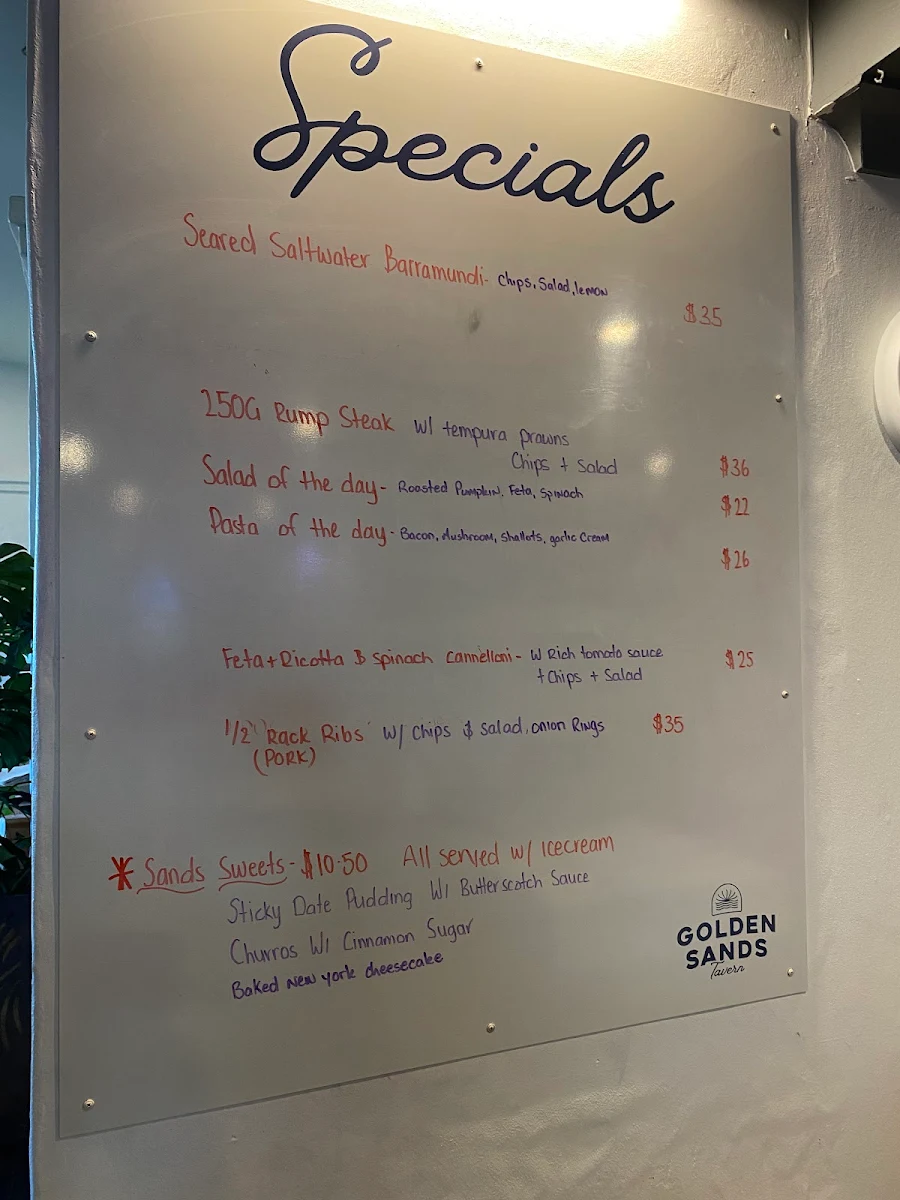 Specials
Seared Saltwater Barramundi - Chips, Salad, lemon
$35
250G Rump Steak W/ tempura prawns
Chips + Salad $36
Salad of the day - Roasted Pumpkin, Feta, Spinach $22
Pasta of the day - Bacon, Mushroom, Shallots, garlic Cream
$26
Feta + Ricotta & Spinach Cannelloni - W Rich tomato sauce $25
+ Chips + Salad
1/2 Rack Ribs W/ Chips & Salad, onion Rings $35
(PORK)
* Sands Sweets - $10.50 All served w/ Icecream
Sticky Date Pudding W/ Butterscotch Sauce
Churros W/ Cinnamon Sugar
Baked New york cheesecake
GOLDEN
SANDS
Tavern